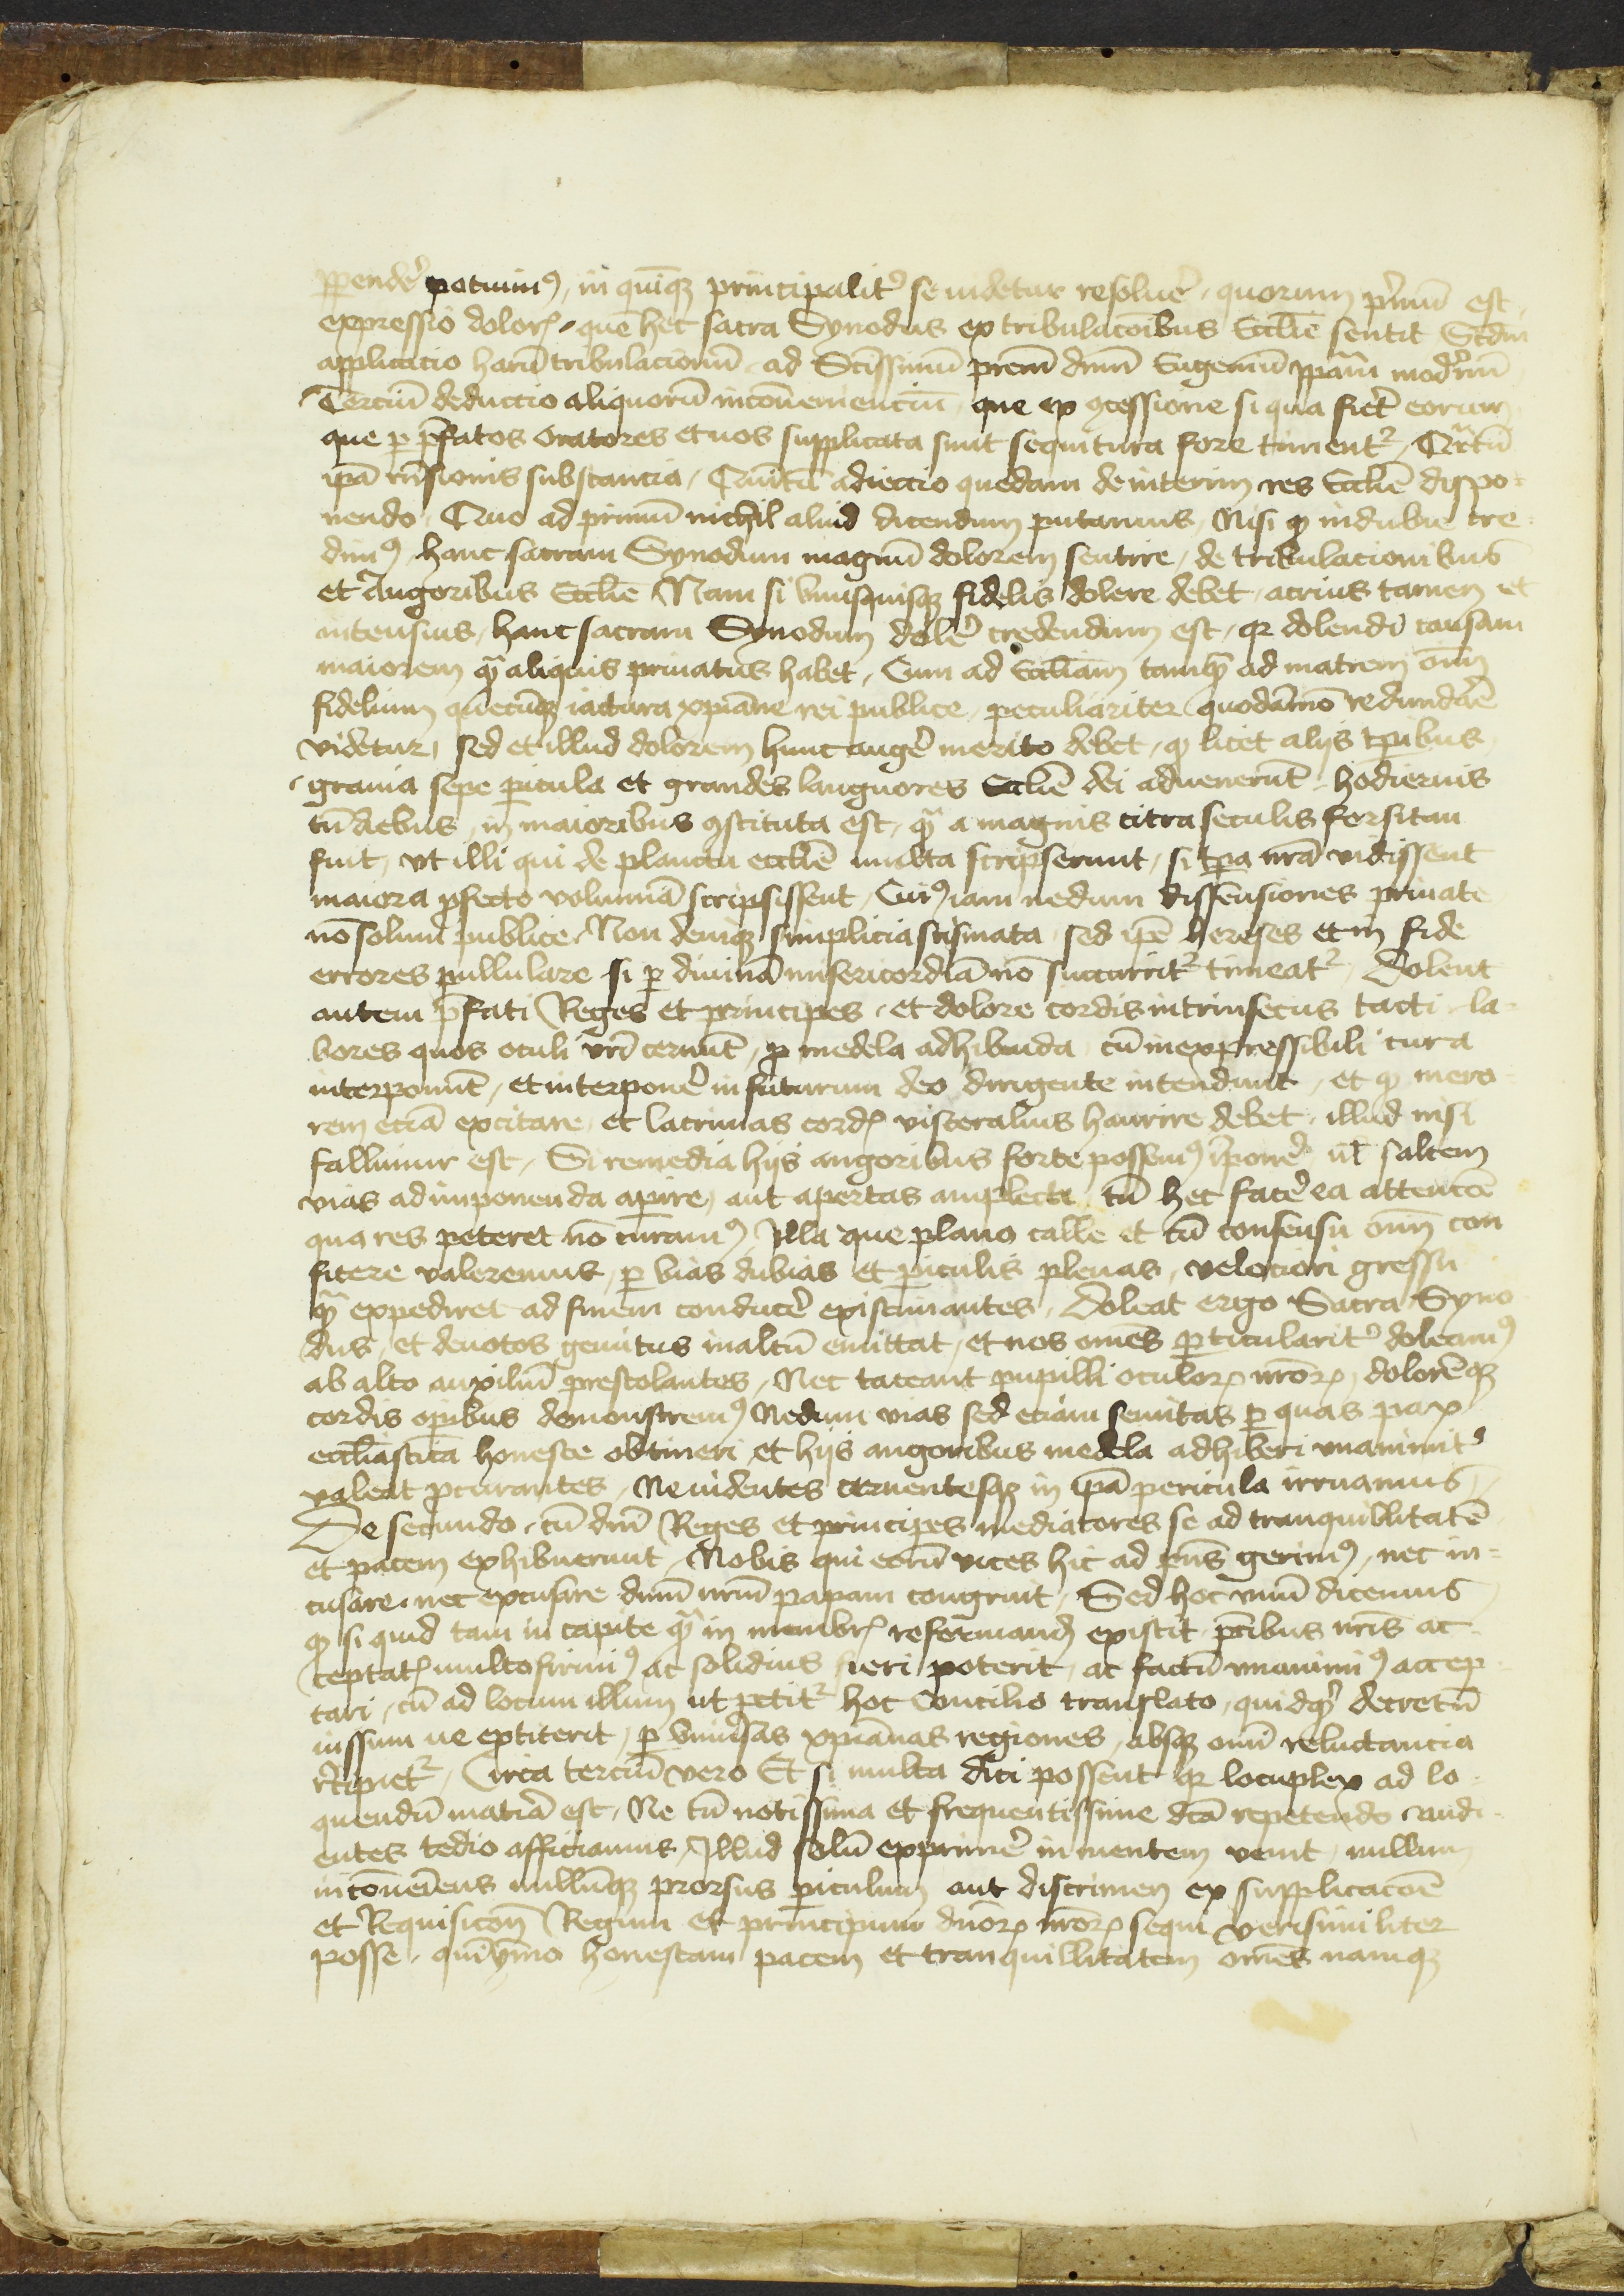 ꝑpendeˀ potuimꝰ, in quinqꝫ principalitˀ se uidetur resolueˀ, quorum pˀmū est
expressio dolorꝭ, quē hec sacra Synodus ex tribulacōibus Ecclīe sentit Scdm
applicacio harū tribulacionū ad Sctissimū prem dnm Eugeniū ppam modˀnū
Terciū deductio aliquorū inconueniencium, que ex ꝯcessione si qua fieret eorum
que ꝑ p̄fatos oratores et nos supplicata sunt sequutura fore timentᷣ, Qrtū
ip̄a rn̄sionis substancia, Quītū adiectio quedam de interim res Ecclīe dispo-
nendo, Quo ad primū nichil aliud dicendum putamus, Nisi ꝙ indubie cre
dimꝰ hanc sacram Synodum magnū dolorem sentire, de tribulacionibus
et Angoribus Ecclīe Nam si vnusquisqꝫ fidelis dolere debet, acrius tamen et
intensius, hanc sacram Synodum doleˀ credendum est, qꝛ dolendi causam
maiorem qͣ aliquis priuatus habet, Cum ad Ecclīam tamqͣ ad matrem oīm
fidelium quecūqꝫ iactura xp̄iane rei publice, peculiariter quodāmō redundare
videtur, sed et illud dolorem hunc augeˀ merito debet, ꝙ licet alijs tp̄ibus
grauia sepe ꝑicula et grandes languores Ecclīe dei aduenerūt, hodiernis
tn̄ diebus, in maioribus ꝯstituta est, qͣ a magnis citra seculis forsitan
fuit, vt illi qui de planctu ecclīe multa scripserunt, si tp̄a nr̄a vidissent
maiora ꝓfecto volumīa scripsissent, Cui iam nedum dissensiones priuate
nō solum publice, Non deniqꝫ simplicia scismata, sed ip̄e hereses et in fide
errores pullulare si ꝑ diuinā misericordiā nō succurritᷣ timeatᷣ, Dolent
autem p̄fati Reges et principes, et dolore cordis intrinsecus tacti la-
bores quos oculi vr̄i cernūt, ꝓ medela adhibenda, cū inexpressibili cura
interponūt, et interponeˀ in futurum deo dirigente intendunt, et ꝙ mero
rem eciā excitare, et lacrimas cordꝭ visceralius haurire debet, illud nisi
fallimur est, Si remedia hijs angoribus forte possemꝰ īponeˀ, ul̄ saltem
vias ad imponenda aperire, aut apertas amplecti, tn̄ hec faceˀ ea attencōe
qua res peteret nō curamꝰ, Illa que plano calle et cū consensu oīm con
ficere valeremus, ꝑ vias dubias et ꝑiculis plenas, velociori gressu
qͣ expediret ad finem conduceˀ existimantes, Doleat ergo Sacra Syno
dus, et deuotos gemitus in altū emittat, et nos omēs ꝑticularitˀ doleamꝰ
ab alto auxiliū prestolantes, Nec taceant pupilli oculorꝝ nr̄orꝝ, dolorēqꝫ
cordis oꝑibus demonstremꝰ Nedum vias sed eciam semitas ꝑ quas pax
eccl̄iastica honeste obtineri et hijs angoribus medela adhiberi vnanimitˀ
valeat ꝓcurantes, Ne uidentes cernentesqꝫ in ip̄a pericula irruamus,
De secundo, cū dnī Reges et principes mediatores se ad tranquillitatē
et pacem exhibuerunt, Nobis qui eorū vices hic ad pn̄s gerimꝰ, nec in-
cusare, nec excusare dnm̄ nr̄um papam congruit, Sed hoc vnū dicemus
ꝙ si quid tam in capite qͣ in membrꝭ reformandꝫ existit, ptibus nr̄is ac
ceptatꝭ multo firmiꝰ ac solidius fieri poterit, ac factū vnanimiꝰ accep
tari, cū ad locum illum ut petitᷣ hoc Concilio translato, quidqͣ decretū
iussum ue extiterit, ꝑ vniuˀsas xp̄ianas regiones, absqꝫ omī reluctancia
rˀcipietᷣ, Circa terciū vero Et si multa dici possent qꝛ locuplex ad lo
quendū matīa est, Ne tn̄ notissima et frequentissime dcā repetendo audi
entes tedio afficiamus, Illud solū exprimeˀ in mentem venit, nullum
incōueniens nullūqꝫ prorsus ꝑiculum aut discrimen ex supplicacōe
et Requisicōn̄ Regum et principum dn̄orꝝ nr̄orꝝ sequi verisimiliter
posse, quīymo honestam pacem et tranquillitatem omēs namqꝫ